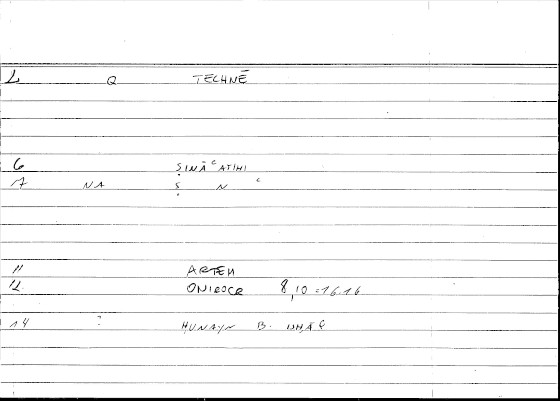 L Q TECHNĒ
6 ṢINĀʿATIHI
17 NA Ṣ N ʿ
11 ARTEM
12 ONIROCR 8,10 = 16.16
14 ? ḤUNAYN B. ISḤĀQ